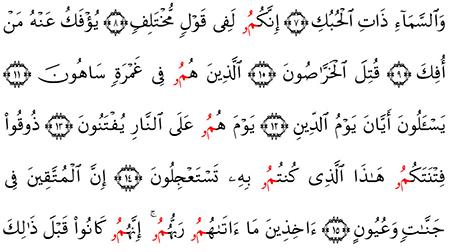 وَٱلسَّمَآءِ ذَاتِ ٱلْحُبُكِ ٧ إِنَّكُمُۥ لَفِى قَوْلٍ مُّخْتَلِفٍ ٨ يُؤْفَكُ عَنْهُ مَنْ
أُفِكَ ٩ قُتِلَ ٱلْخَرَّٰصُونَ ١٠ ٱلَّذِينَ هُمُۥ فِى غَمْرَةٍ سَاهُونَ ١١
يَسْـَٔلُونَ أَيَّانَ يَوْمُ ٱلدِّينِ ١٢ يَوْمَ هُمُۥ عَلَى ٱلنَّارِ يُفْتَنُونَ ١٣ ذُوقُوا۟
فِتْنَتَكُمُۥ هَٰذَا ٱلَّذِى كُنتُمُۥ بِهِۦ تَسْتَعْجِلُونَ ١٤ إِنَّ ٱلْمُتَّقِينَ فِى
جَنَّٰتٍ وَعُيُونٍ ١٥ ءَاخِذِينَ مَا ءَاتَىٰهُمُۥ رَبُّهُمُۥ ۚ إِنَّهُمُۥ كَانُوا۟ قَبْلَ ذَٰلِكَ